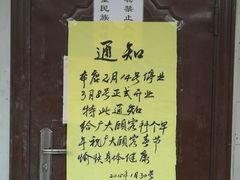 通知
本店2月14号停业
3月8号正式开业
特此通知
给广大顾客拜个早
年祝广大顾客春节
愉快身体健康
2015年1月30号